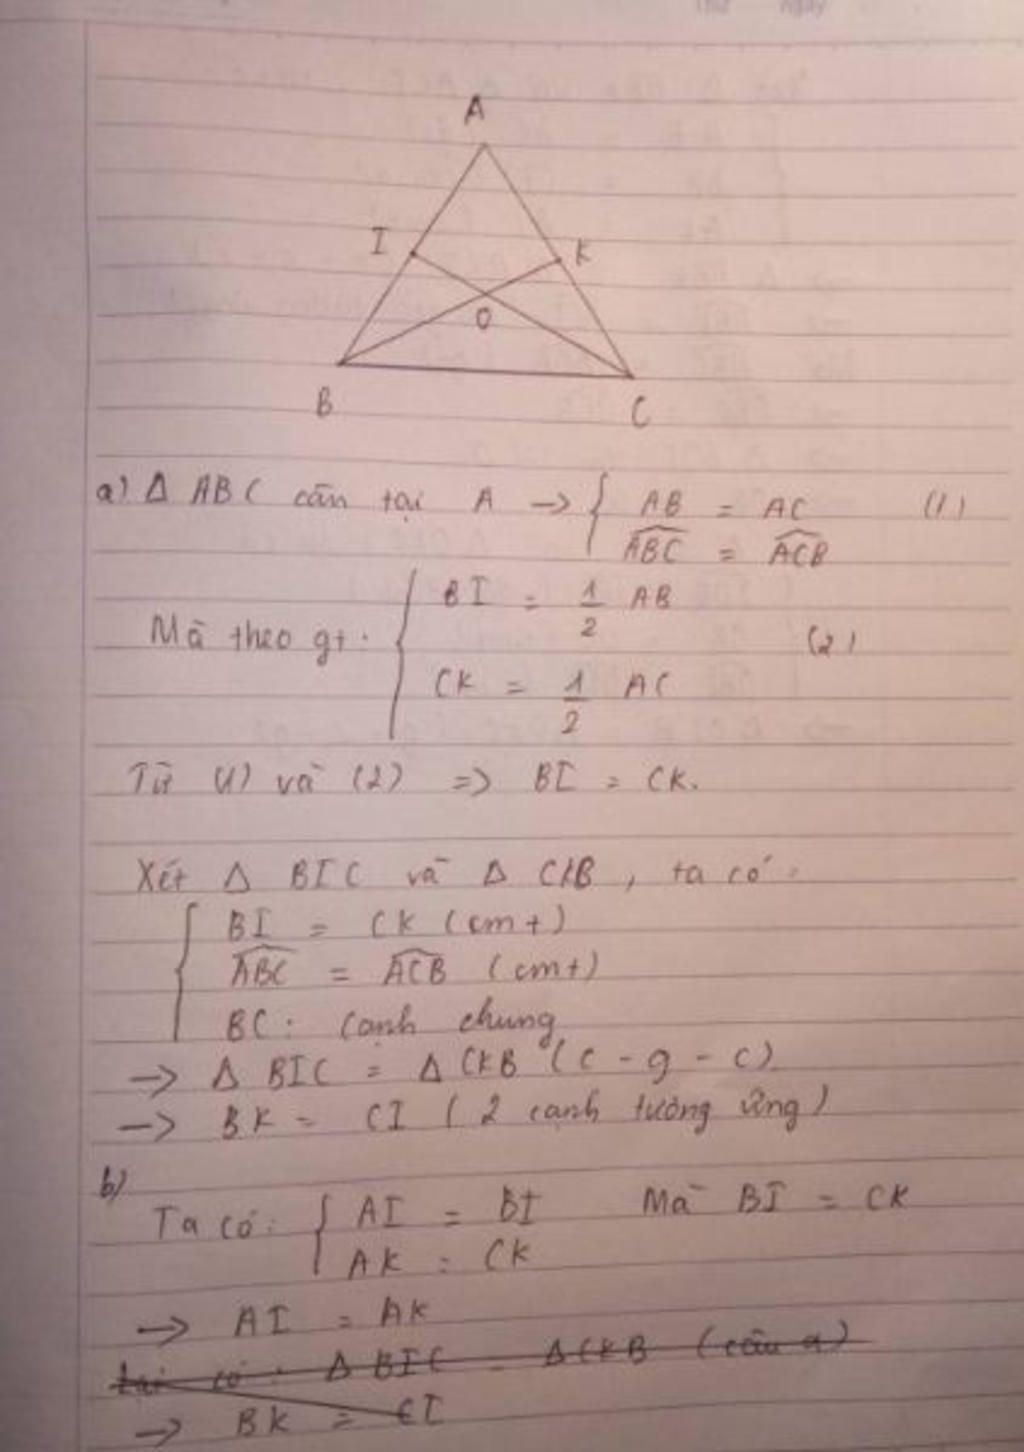 A
I
K
O
B
C
a) Δ ABC cân tại A → { AB = AC (1)
ABC = ACB
BI = 1/2 AB
Mà theo gt: (2)
CK = 1/2 AC
Từ (1) và (2) => BI = CK.
Xét Δ BIC và Δ CKB, ta có:
BI = CK (cmt)
ABC = ACB (cmt)
BC: cạnh chung
→ Δ BIC = Δ CKB (c - g - c)
→ BK = CI (2 cạnh tương ứng)
b)
Ta có: { AI = BI Mà BI = CK
AK = CK
→ AI = AK
lại có: Δ BIC = Δ CKB (câu a)
→ BK = CI